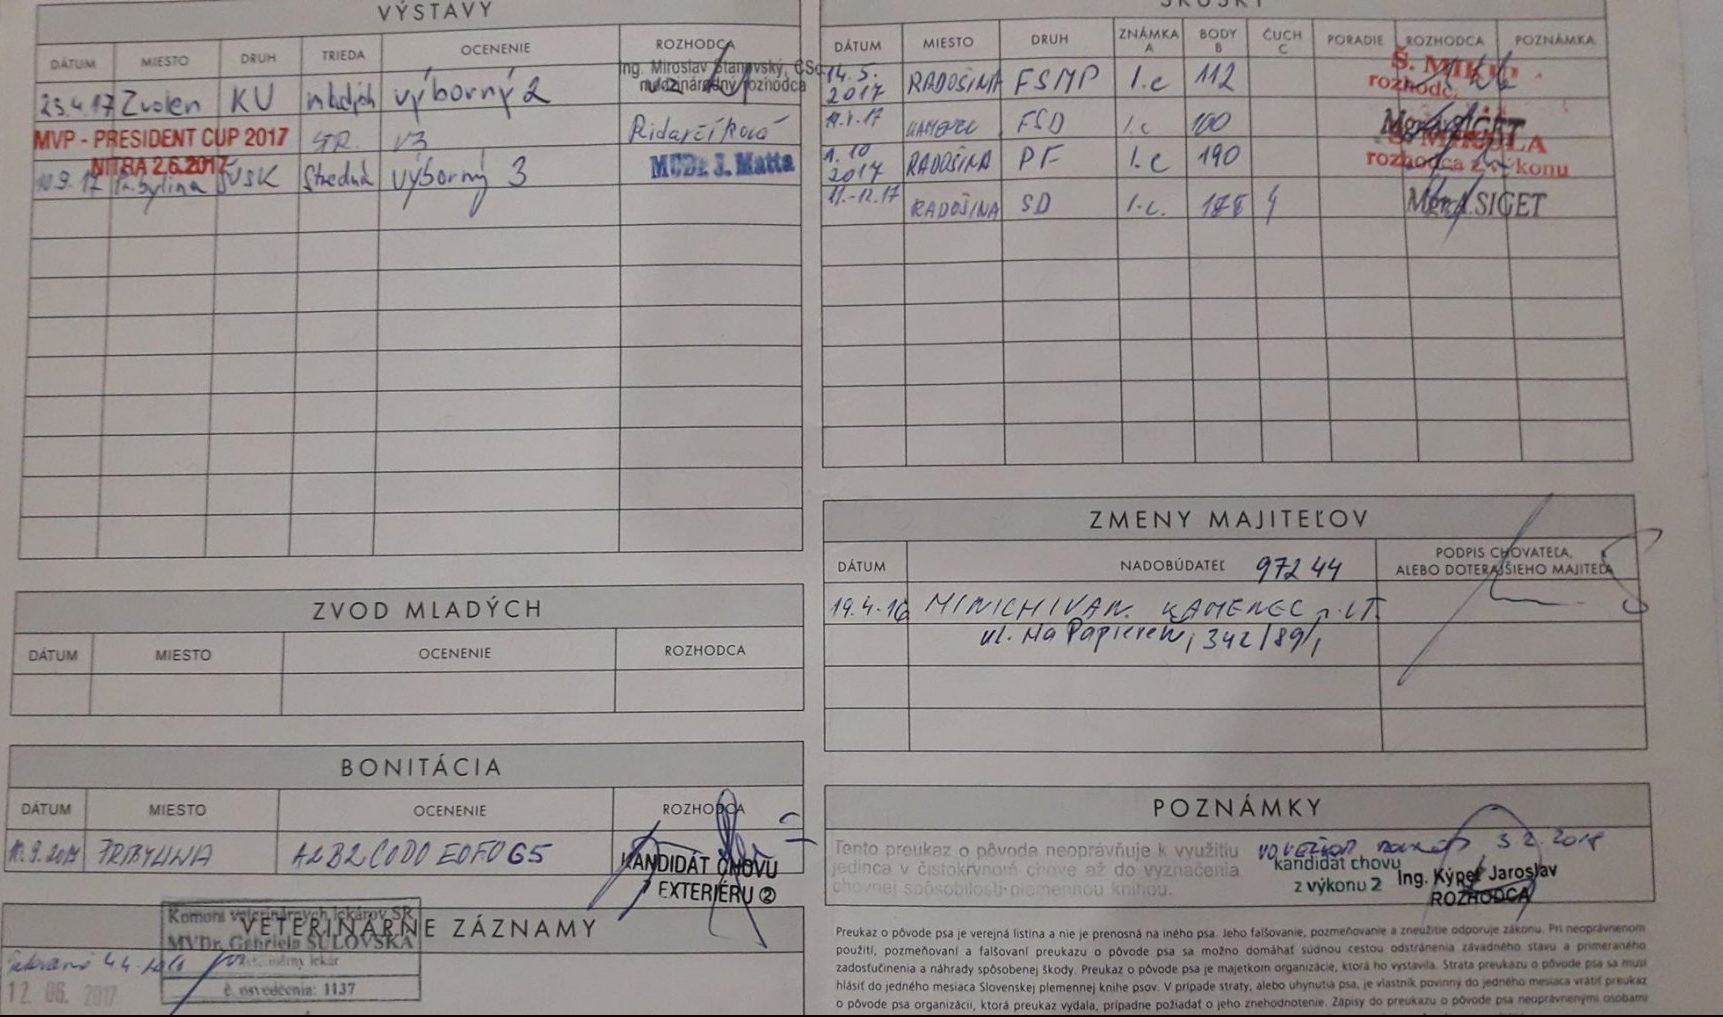 VÝSTAVY
DÁTUM MIESTO DRUH TRIEDA OCENENIE ROZHODCA
23.4.17 Zvolen KU mladých výborný 2
Ing. Miroslav Stanovský, CSc.
medzinárodný rozhodca
MVP - PRESIDENT CUP 2017 V3
NITRA 2.6.2017
10.9.17 Pribylina ŠVSK Stredná výborný 3 MVDr. J. Matta
SKÚŠKY
DÁTUM MIESTO DRUH ZNÁMKA A BODY B ČUCH C PORADIE ROZHODCA POZNÁMKA
14.5. 2017 RADOŠINA FSMP I.c 112
KAMENEC FSD I.c 160
1.10 2017 RADOŠINA PF I.c 190
rozhodca z výkonu
RADOŠINA SD I.c. 4 SIGET
ZVOD MLADÝCH
DÁTUM MIESTO OCENENIE ROZHODCA
ZMENY MAJITEĽOV
DÁTUM NADOBÚDATEĽ 972 44 PODPIS CHOVATEĽA,
ALEBO DOTERAJŠIEHO MAJITEĽA
19.4.16 MINICH IVAN. KAMENEC
ul. Na Papiereň, 342/89/1
BONITÁCIA
DÁTUM MIESTO OCENENIE ROZHODCA
PRIBYLINA A2B2C0D0E0F0G5
KANDIDÁT CHOVU
EXTERIÉRU 2
VETERINÁRNE ZÁZNAMY
Komora veterinárnych lekárov SR
MVDr. Gabriela SULOVSKÁ
č. osvedčenia: 1137
12. 06. 2017
POZNÁMKY
Tento preukaz o pôvode neoprávňuje k využitiu
jedinca v čistokrvnom chove až do vyznačenia
chovnej spôsobilosti plemennou knihou.
3.2.2018
kandidát chovu
z výkonu 2
Ing. Kýpeť Jaroslav
ROZHODCA
Preukaz o pôvode psa je verejná listina a nie je prenosná na iného psa. Jeho falšovanie, pozmeňovanie a zneužitie odporuje zákonu. Pri neoprávnenom
použití, pozmeňovaní a falšovaní preukazu o pôvode psa sa možno domáhať súdnou cestou odstránenia závadného stavu a primeraného
zadosťučinenia a náhrady spôsobenej škody. Preukaz o pôvode psa je majetkom organizácie, ktorá ho vystavila. Strata preukazu o pôvode psa sa musí
hlásiť do jedného mesiaca Slovenskej plemennej knihe psov. V prípade straty, alebo uhynutia psa, je vlastník povinný do jedného mesiaca vrátiť preukaz
o pôvode psa organizácii, ktorá preukaz vydala, prípadne požiadať o jeho znehodnotenie. Zápisy do preukazu o pôvode psa neoprávnenými osobami